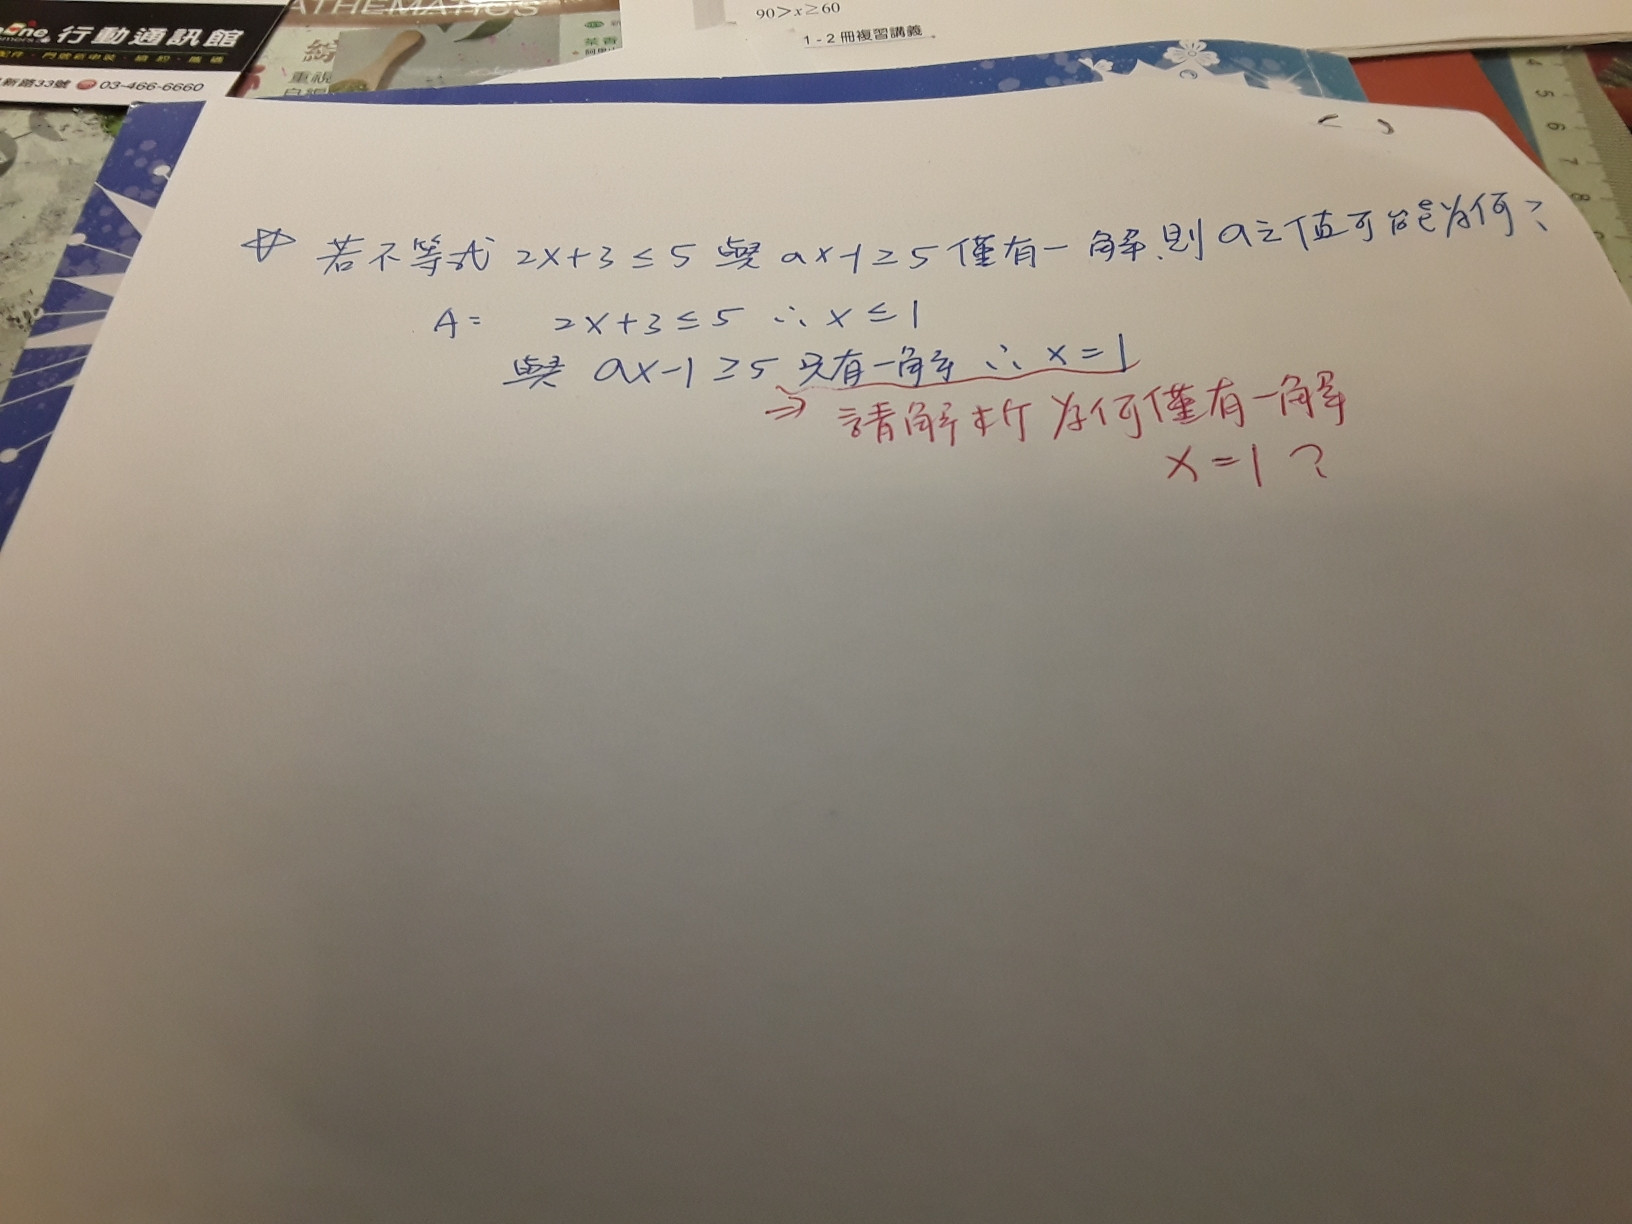 行動通訊館
新路33號 03-466-6660
ATHEMATICS
重視
90>x≥60
1-2冊複習講義
( )
若不等式 2x+3≤5 與 ax-1≥5 僅有一解,則 a之值可能為何?
A= 2x+3≤5 ∴ x≤1
與 ax-1≥5 只有一解 ∴ x=1
⇒ 請解析為何僅有一解
x=1?
4 5 6 7 8